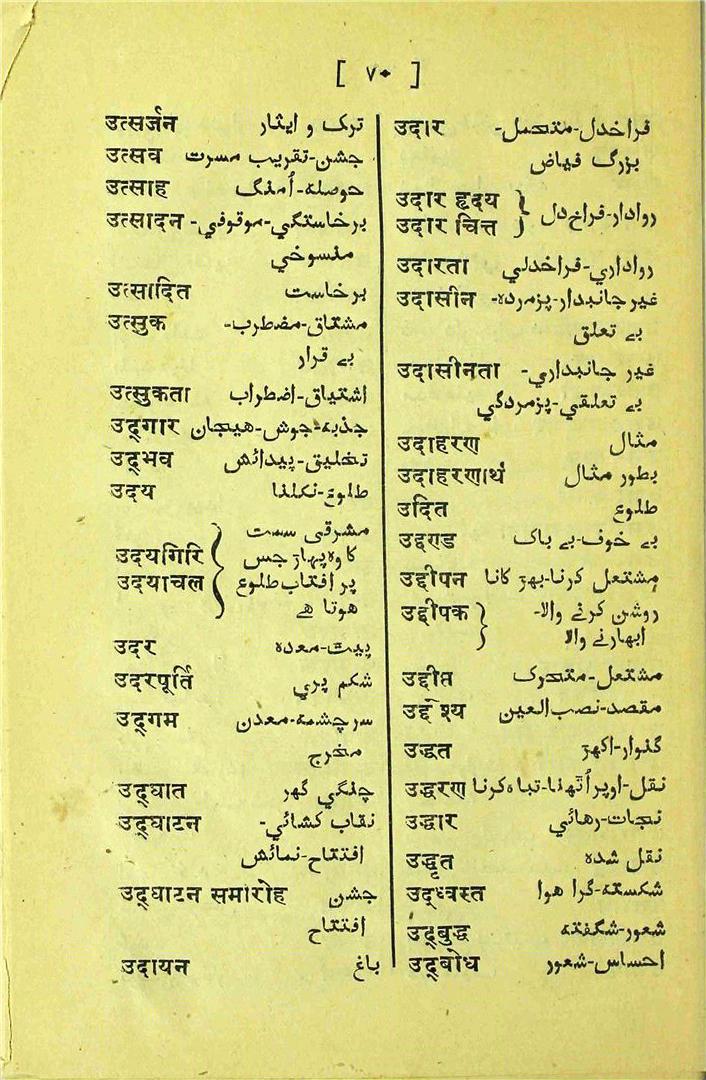 [ ۷۰ ]
उत्सर्जन ترک و ایثار
उत्सव جشن-تقریب مسرت
उत्साह حوصلہ-اُمنگ
उत्सादन برخاستگي-موقوفي-
منسوخي
उत्सादित برخاست
उत्सुक مشتاق-مضطرب-
بے قرار
उत्सुकता اشتیاق-اضطراب
उद्‌गार جذبہ-جوش-هیجان
उद्‌भव تخلیق-پیدائش
उदय طلوع-نکلنا
مشرقی سمت
उदयगिरि کا وہ پہاڑ جس
उदयाचल پر افتاب طلوع
هوتا هے
उदर پیٹ-معدہ
उदरपूर्ति شکم پري
उद्‌गम سر چشمہ-معدن
مخرج
उद्‌घात چنگي گهر
उद्‌घाटन نقاب کشائي-
افتتاح-نمائش
उद्‌घाटन समारोह جشن
افتتاح
उदायन باغ
उदार فراخدل-متحمل-
بزرگ فیاض
उदार हृदय
उदार चित्त } روادار-فراخ دل
उदारता رواداري-فراخدلي
उदासीन غیر جانبدار-پزمردہ-
بے تعلق
उदासीनता غیر جانبداري-
بے تعلقي-پزمردگي
उदाहरण مثال
उदाहरणार्थ بطور مثال
उदित طلوع
उद्दण्ड بے خوف-بے باک
उद्दीपन مشتعل کرنا-بهڑ کانا
उद्दीपक } روشن کرنے والا-
ابهارنے والا
उद्दीप्त مشتعل-متحرک
उद्देश्य مقصد-نصب العین
उद्धत گنوار-اکهڑ
उद्धरण نقل-اوپر اُٹهانا-تباہ کرنا
उद्धार نجات-رهائي
उद्धृत نقل شدہ
उद्‌ध्वस्त شکستہ-گرا هوا
उद्‌बुद्ध شعور-شگفتہ
उद्‌बोध احساس-شعور